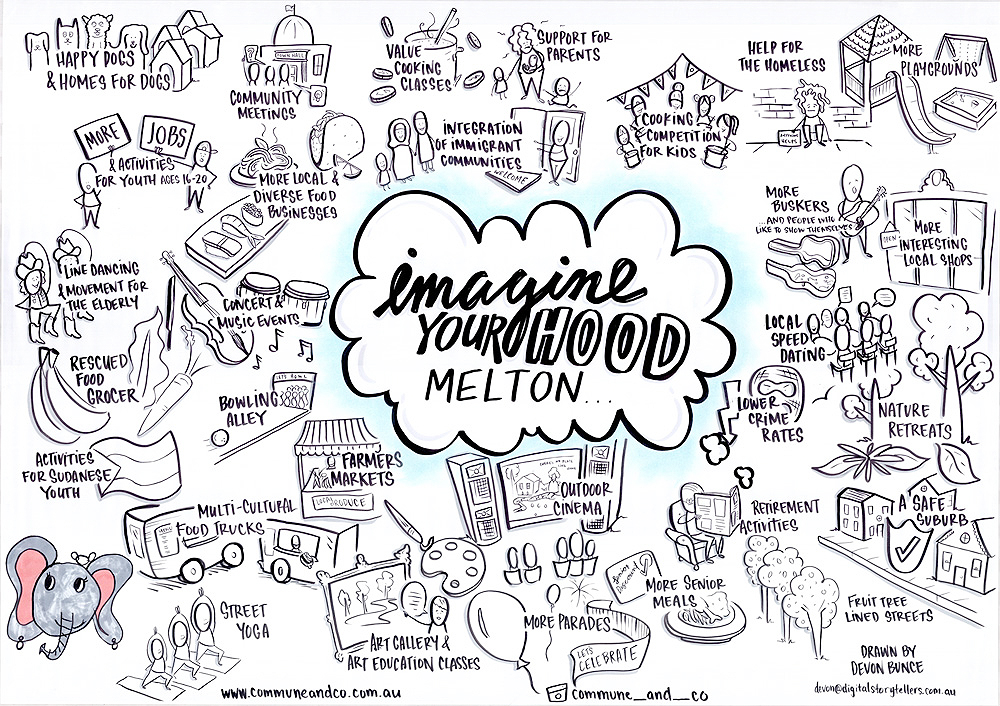 HAPPY DOGS
& HOMES FOR DOGS
TOWN HALL
COMMUNITY
MEETINGS
VALUE
COOKING
CLASSES
SUPPORT FOR
PARENTS
HELP FOR
THE HOMELESS
MORE
PLAYGROUNDS
MORE
JOBS
& ACTIVITIES
FOR YOUTH AGES 16-20
MORE LOCAL &
DIVERSE FOOD
BUSINESSES
INTEGRATION
OF IMMIGRANT
COMMUNITIES
WELCOME
COOKING
COMPETITION
FOR KIDS
MORE
BUSKERS
...AND PEOPLE WHO
LIKE TO SHOW THEMSELVES
OPEN
MORE
INTERESTING
LOCAL SHOPS
LINE DANCING
& MOVEMENT FOR
THE ELDERLY
CONCERT &
MUSIC EVENTS
imagine
YOUR HOOD
MELTON...
LOCAL
SPEED
DATING
RESCUED
FOOD
GROCER
LETS BOWL
BOWLING
ALLEY
LOWER
CRIME
RATES
NATURE
RETREATS
ACTIVITIES
FOR SUDANESE
YOUTH
FARMERS
MARKETS
PRODUCE
OUTDOOR
CINEMA
RETIREMENT
ACTIVITIES
A SAFE
SUBURB
MULTI-CULTURAL
FOOD TRUCKS
STREET
YOGA
ART GALLERY &
ART EDUCATION CLASSES
MORE PARADES
LETS
CELEBRATE
MORE SENIOR
MEALS
FRUIT TREE
LINED STREETS
DRAWN BY
DEVON BUNCE
devon@digitalstorytellers.com.au
www.communeandco.com.au
commune_and_co